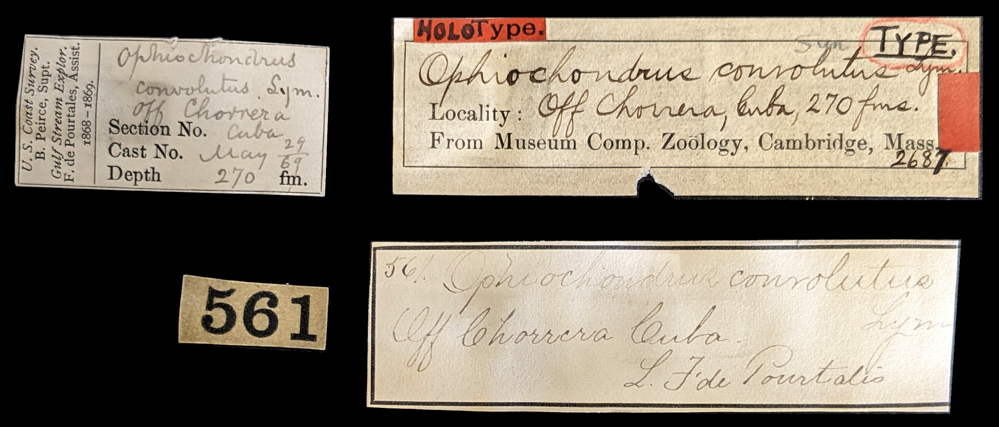 U. S. Coast Survey.
B. Peirce, Supt.
Gulf Stream Explor.
F. de Pourtales, Assist.
1868-1869.
Ophiochondrus
convolutus. Lym.
Off Chorrera
Section No. Cuba,
Cast No. May 29/69
Depth 270 fm.
HOLOType.
Syn, TYPE.
Ophiochondrus convolutus Lym.
Locality: Off Chorrera, Cuba, 270 fms.
From Museum Comp. Zoölogy, Cambridge, Mass.
2687
561
561. Ophiochondrus convolutus
Lym
Off Chorrera Cuba.
L. F. de Pourtalis